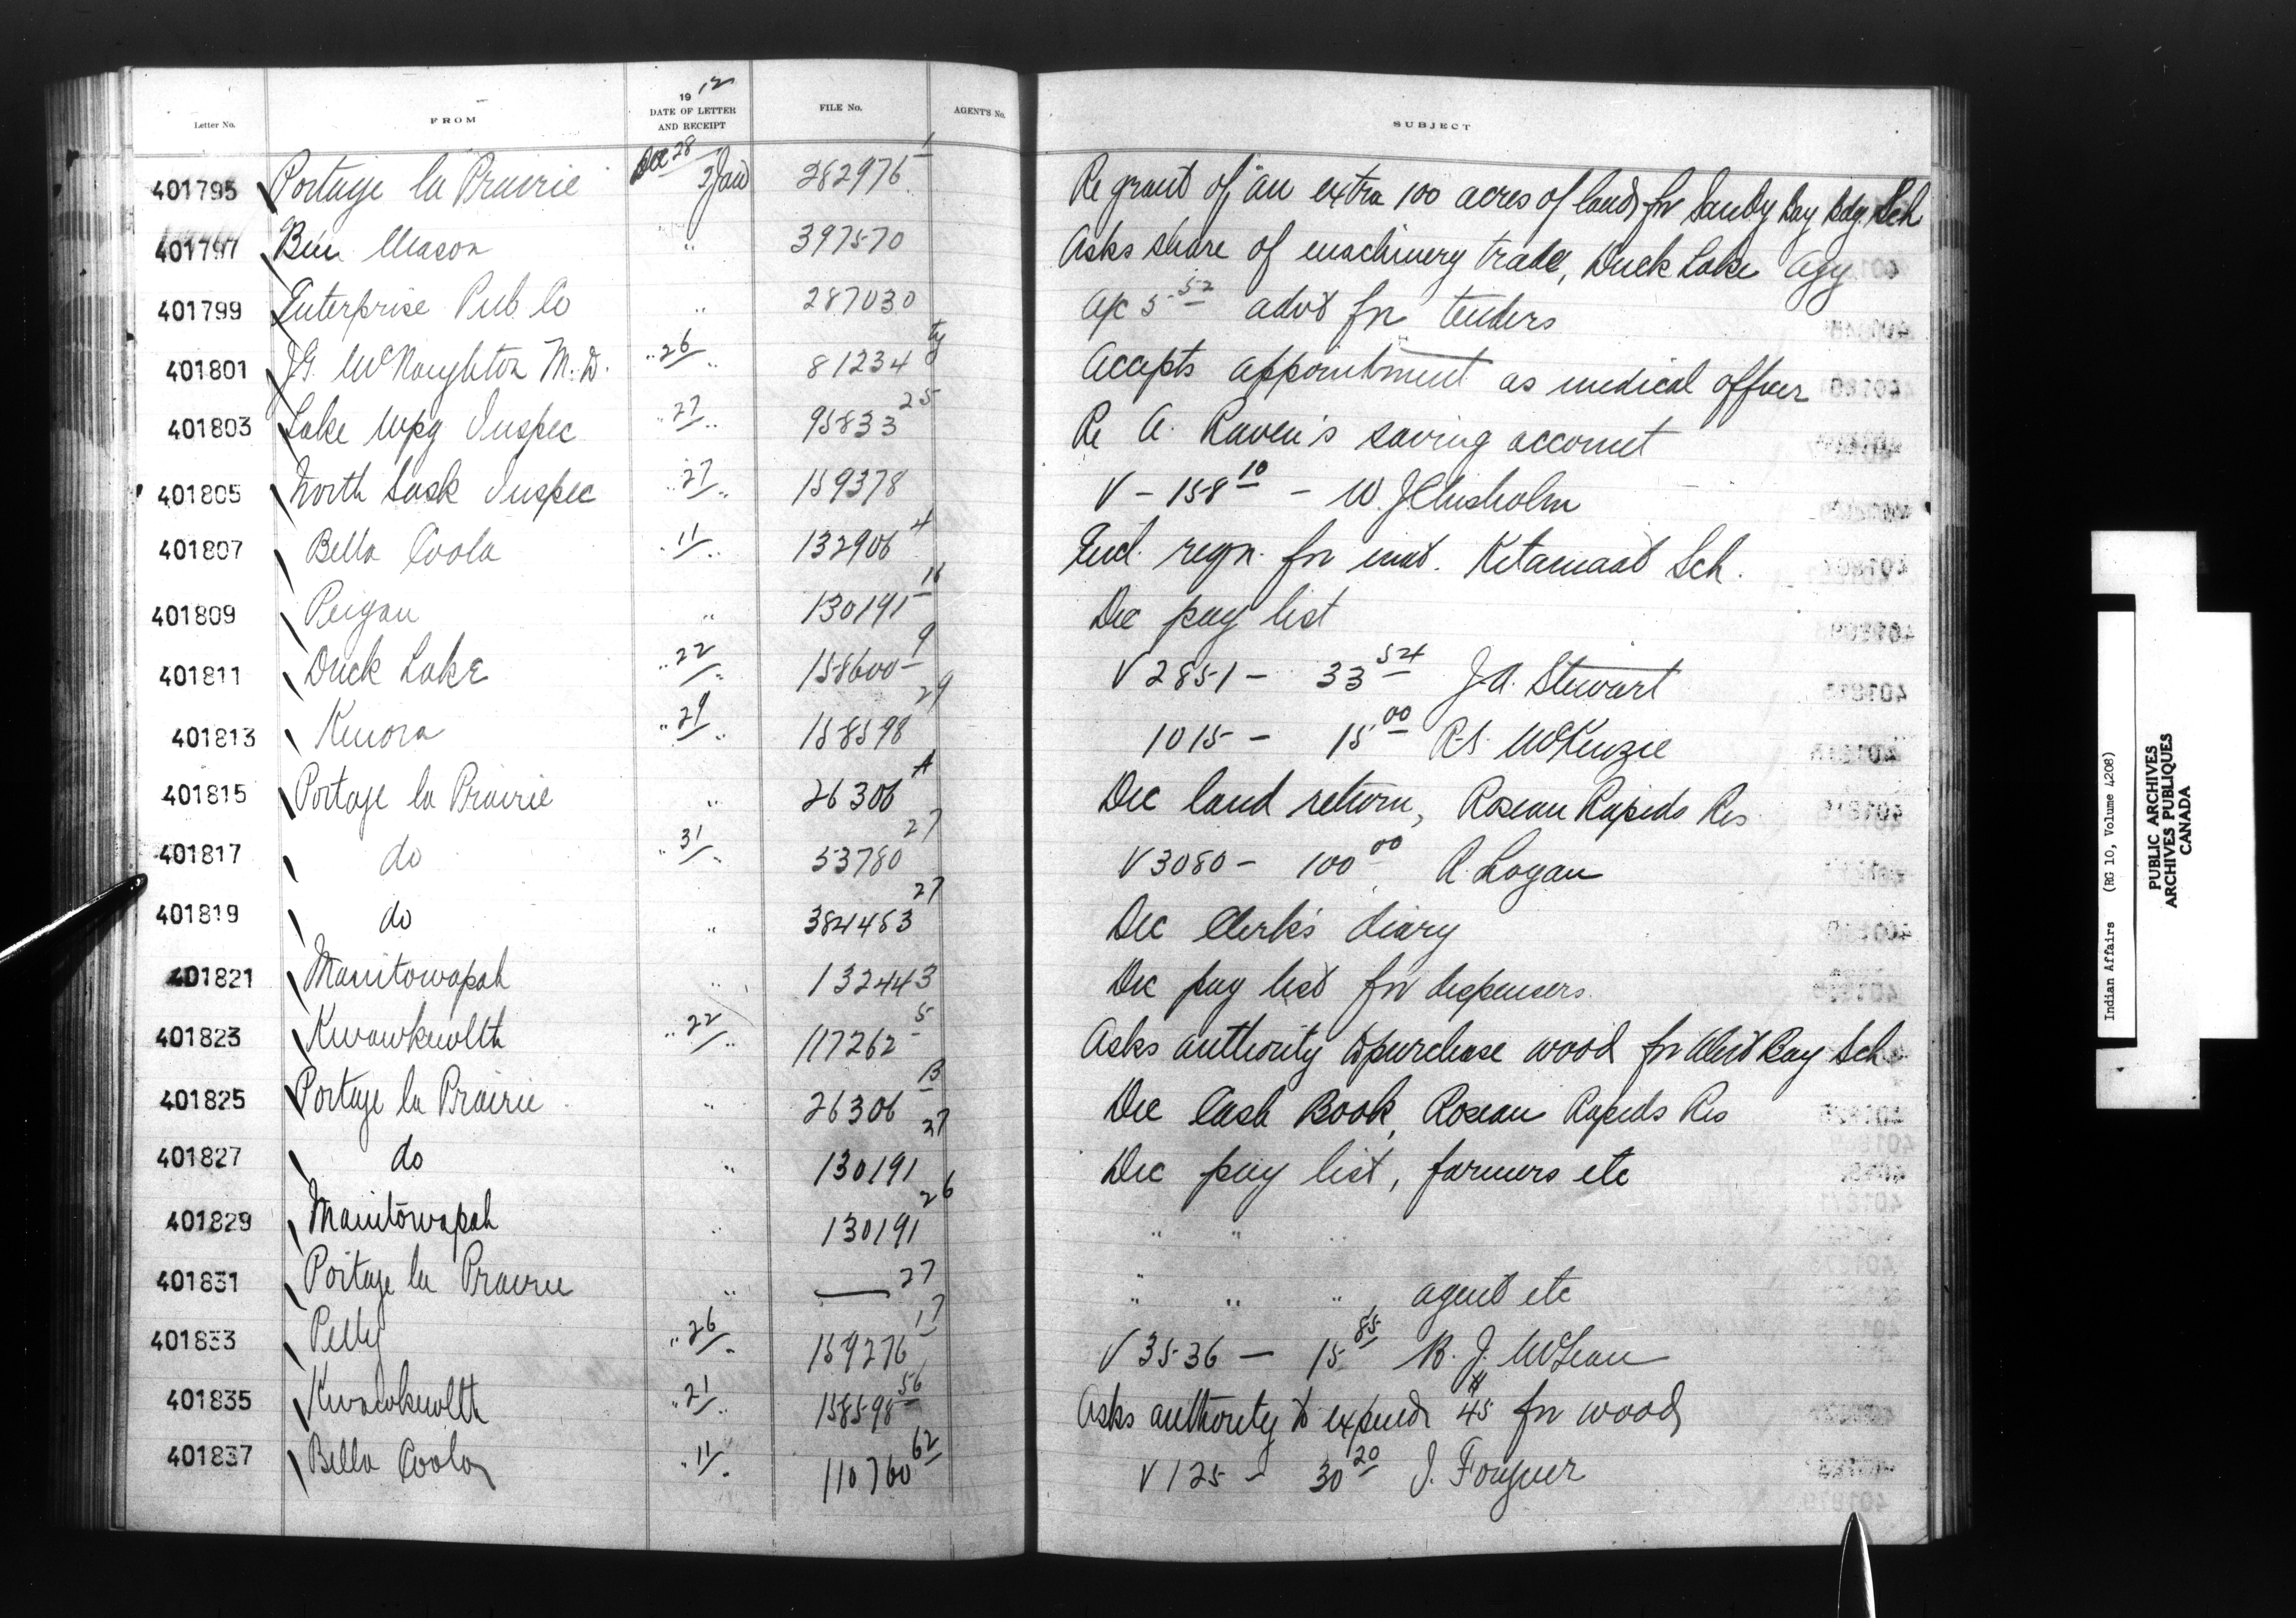 Letter No. FROM 19 12 DATE OF LETTER AND RECEIPT FILE No. AGENT'S No. SUBJECT
401795 Portage la Prairie Dec 28 2 Jan 282976 1 Re grant of an extra 100 acres of land for Sandy Bay Bdg. Sch
401797 Ben Mason " 397570 Asks share of machinery trade, Duck Lake Agy
401799 Enterprise Pub Co " 287030 a/c 5 52 advt for tenders
401801 J.G. McNaughton M.D. " 26 " 81234 ty Accepts appointment as medical officer
401803 Lake Wpg Inspec " 27 " 95833 25 Re A. Raven's saving account
401805 North Sask Inspec " 27 " 159378 V - 158 10 - W. J Chisholm
401807 Bella Coola " 11 " 132906 4 Encl. reqn. for mat. Kitamaat Sch.
401809 Peigan " 130191 16 Dec pay list
401811 Duck Lake " 22 " 158600 9 V 2851 - 33 54 J.A. Stewart
401813 Kenora " 29 " 158598 29 1015 - 15 00 R.S. McKenzie
401815 Portage la Prairie " 26306 A Dec land return, Roseau Rapids Res
401817 do " 31 " 53780 27 V 3080 - 100 00 R. Logan
401819 do " 384483 27 Dec Clerk's diary
401821 Manitowapah " 132443 Dec pay list for dispensers
401823 Kwawkewlth " 22 " 117262 5 Asks authority to purchase wood for Alert Bay Sch
401825 Portage la Prairie " 26306 B Dec Cash Book, Roseau Rapids Res
401827 do " 130191 27 Dec pay list, farmers etc
401829 Manitowapah " 130191 26 " " " "
401831 Portage la Prairie " — 27 " " " , agent etc
401833 Pelly " 26 " 159276 17 V 3536 - 15 85 R. J. McLean
401835 Kwawkewlth " 21 " 158598 56 Asks authority to expend $45 for wood
401837 Bella Coola " 11 " 110760 62 V 125 - 30 20 J. Fougner
Indian Affairs (RG 10, Volume 4208)
PUBLIC ARCHIVES
ARCHIVES PUBLIQUES
CANADA